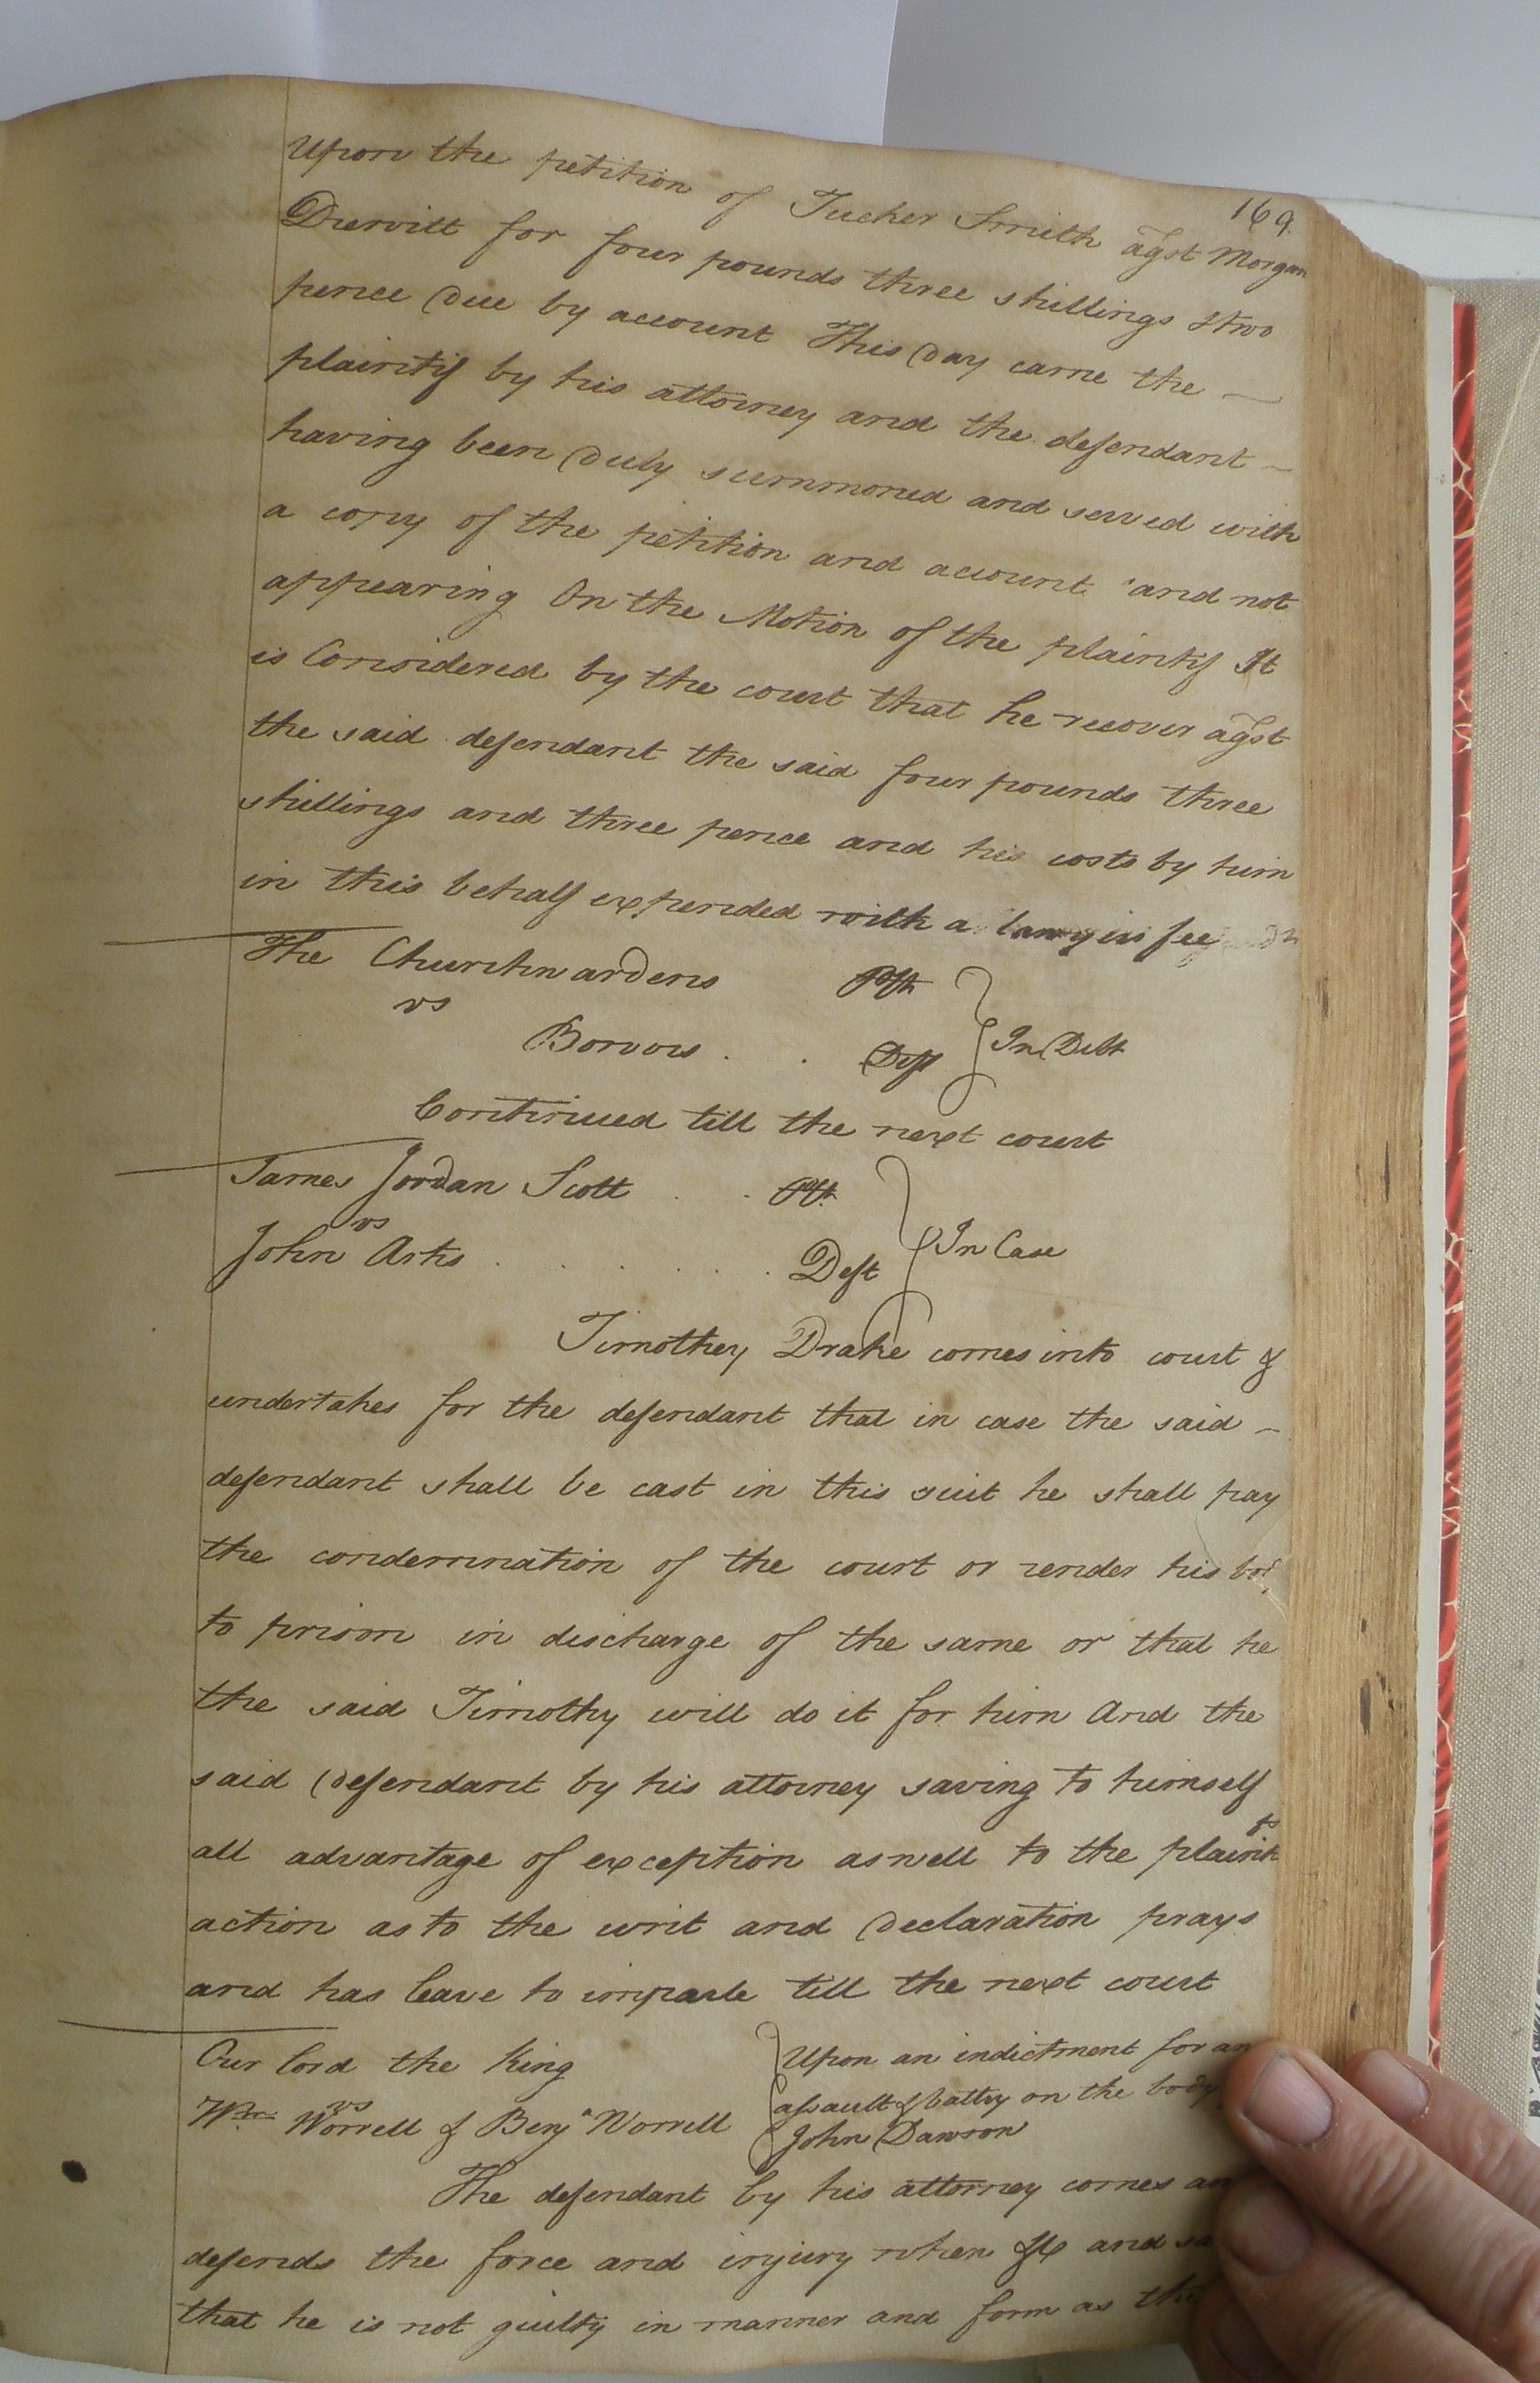 169.
Upon the petition of Tucker Smith agst Morgan
for four pounds three shillings & two
pence due by account This day came the
plaintif by his attorney and the defendant
having been duly summoned and served with
a copy of the petition and account and not
appearing On the Motion of the plaintif It
is Considered by the court that he recover agst
the said defendant the said four pounds three
shillings and three pence and his costs by him
in this behalf expended with a lawyers fee
The Churchwardens Plft
vs
Deft In Debt
Continued till the next court
James Jordan Scott . . Plft.
vs
John . . . . . . Deft In Case
Timothey Drake comes into court &
undertakes for the defendant that in case the said
defendant shall be cast in this suit he shall pay
the condemnation of the court or render his
to prison in discharge of the same or that he
the said Timothy will do it for him And the
said defendant by his attorney saving to himself
all advantage of exception aswell to the
action as to the writ and declaration prays
and has leave to imparle till the next court
Our lord the King Upon an indictment for an
vs assault & battry on the body
Wm Worrell & Benja Worrell John Dawson
The defendant by his attorney comes an
defends the force and injury when &c and sa
that he is not guilty in manner and form as the